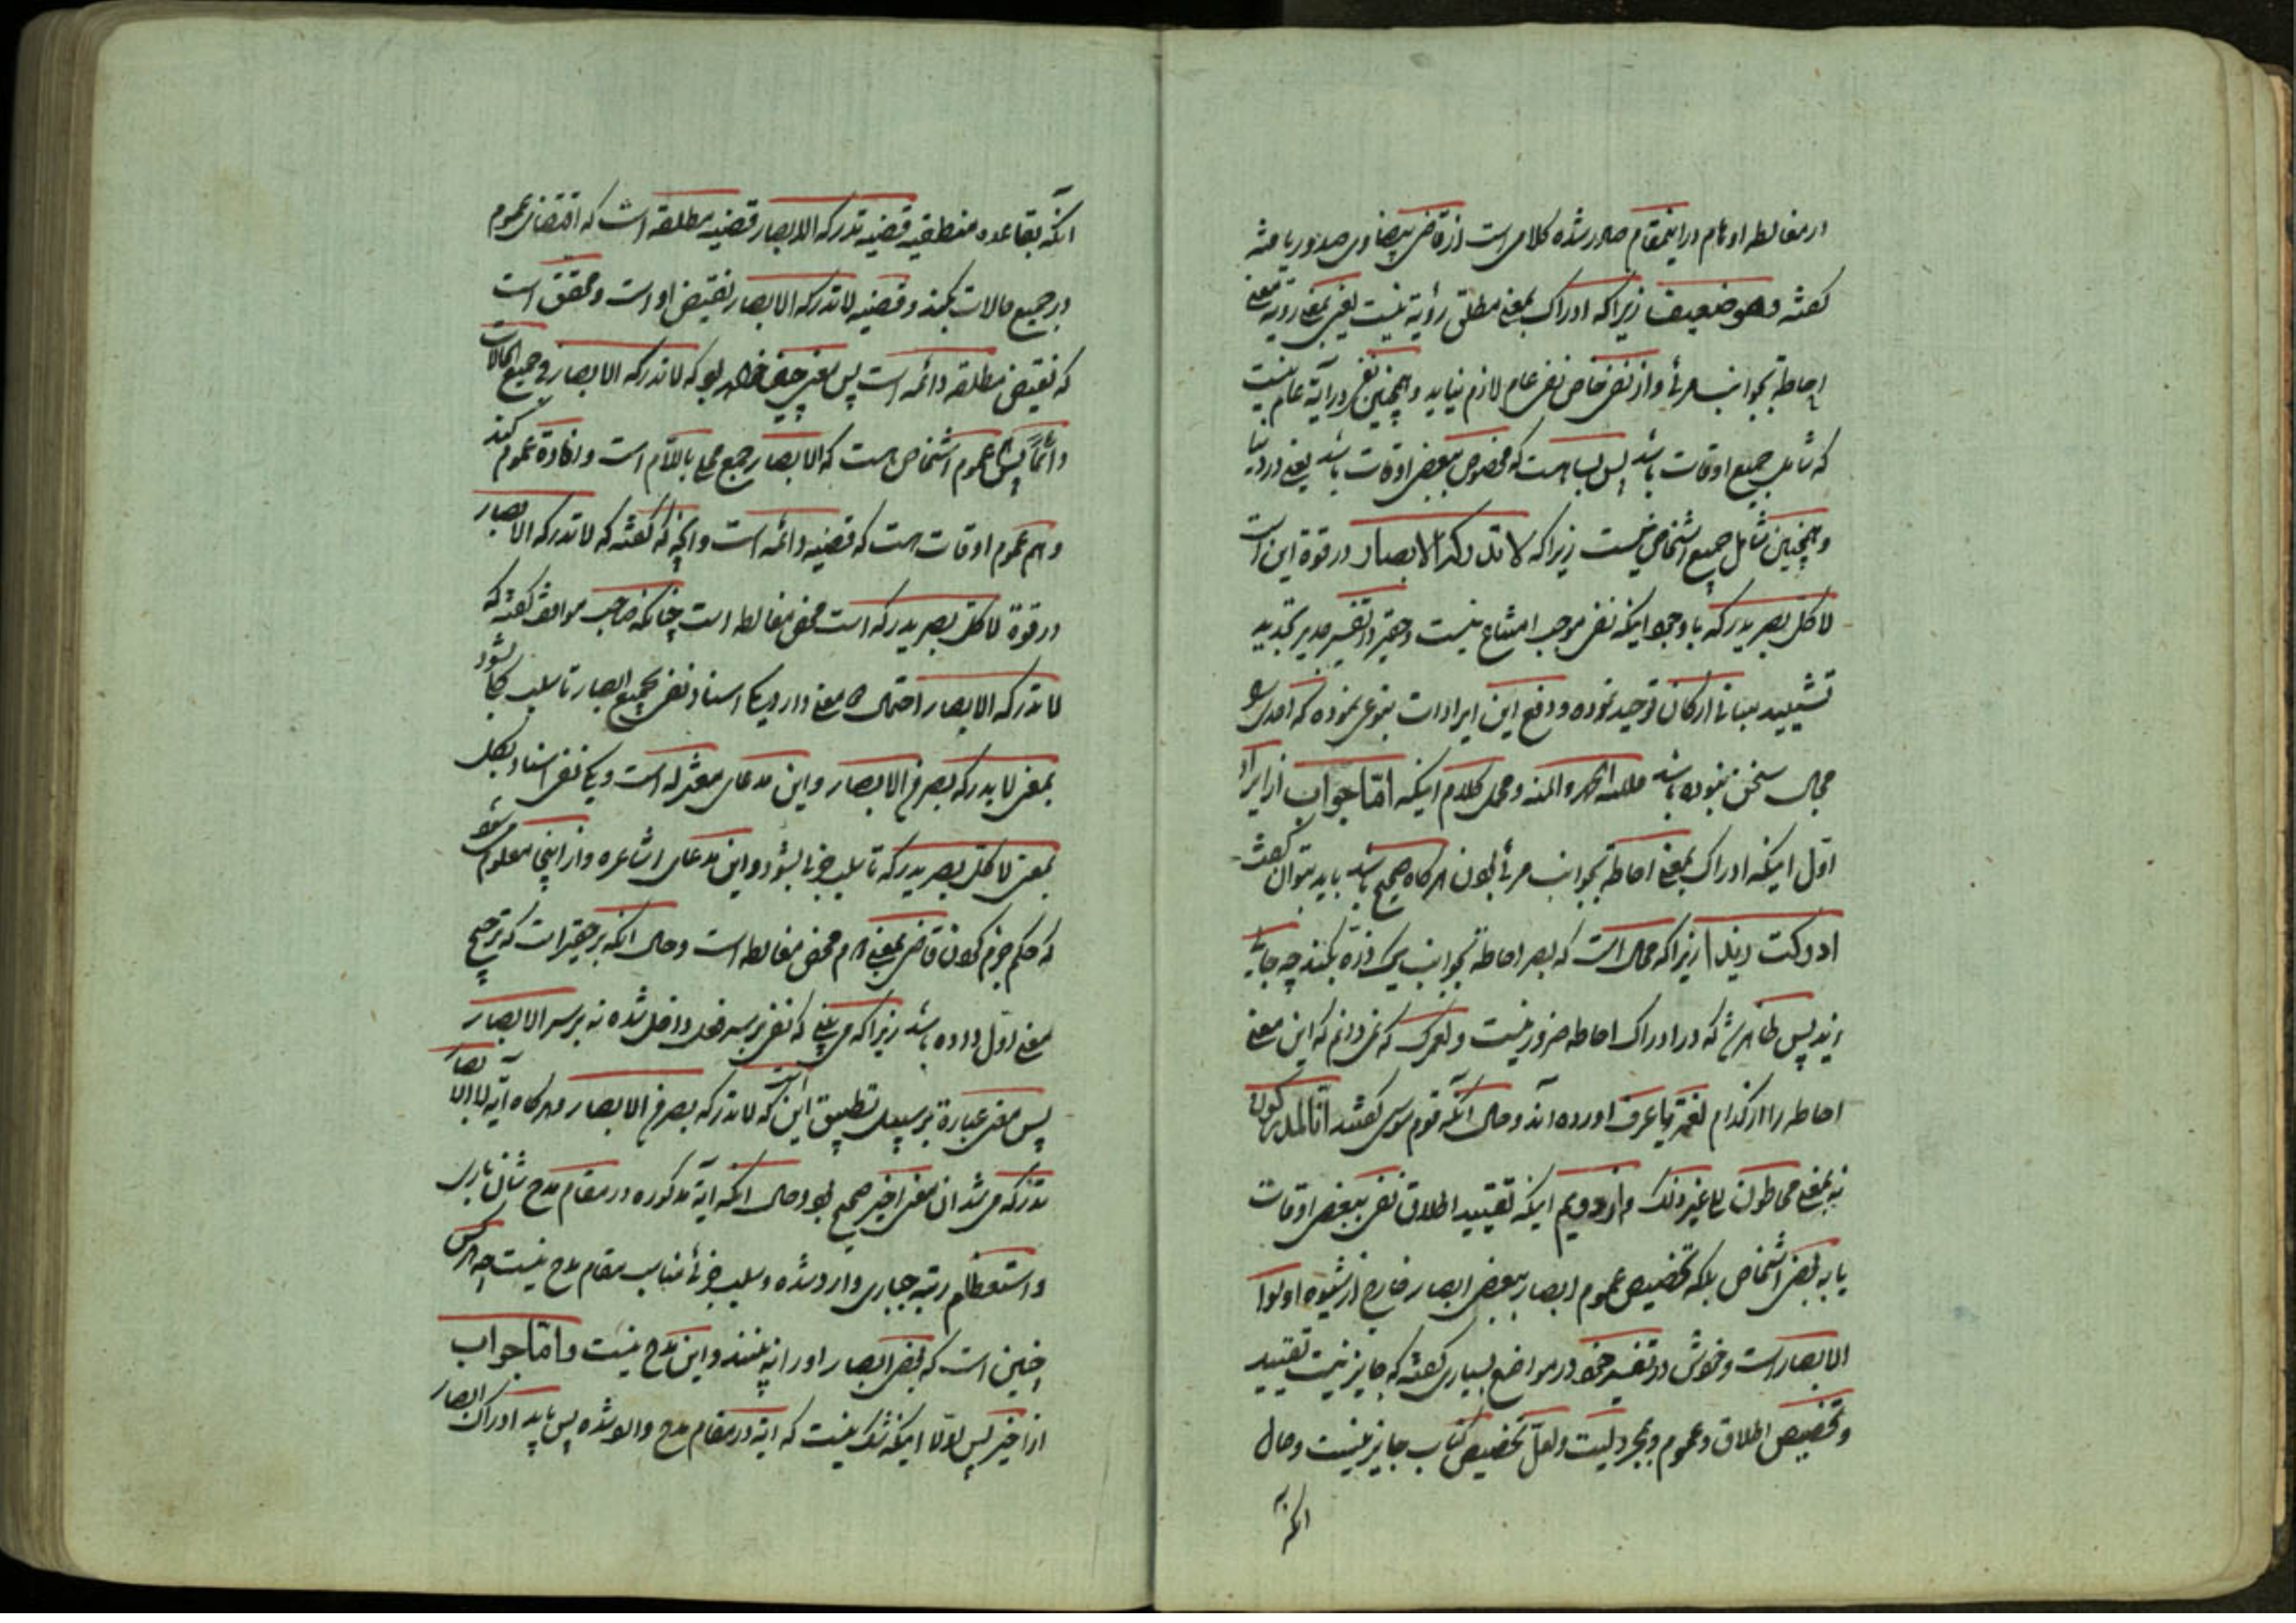 از مغالطه اوهام در اینمقام صادر شده کلامی است از قاضی بیضاوی صدور یافته
گفته وهو ضعیف زیرا که ادراک بمعنی مطلق رؤیة نیست یعنی بمعنی رویة بمعنی
احاطه بجوانب مرئی و از نفی خاص نفی عام لازم نیاید و همچنین نفی در آیة عام نیست
که شامل جمیع اوقات باشد پس بسا هست که مخصوص ببعض اوقات باشد یعنی در دنیا
و همچنین شامل جمیع اشخاص نیست زیرا که لا تدرکه الابصار در قوة این است
لا کل بصر یدرکه با وجود اینکه نفی موجب امتناع نیست و حقیر در تفسیر
تشیید مبانی ارکان توحید نموده و دفع این ایرادات بنوعی نموده که احدی را
مجال سخن نبوده باشد فلله الحمد والمنه و مجمل کلام اینکه اما جواب از ایراد
اول اینکه ادراک بمعنی احاطه بجوانب مرئی بودن هرگاه صحیح باشد باید بتوان گفت
ادرکت زیدا زیرا که محال است که بصر احاطه بجوانب یک ذره بکند چه جای
زید پس ظاهر شد که در ادراک احاطه ضرور نیست و لعمرک که نمی دانم که این معنی
احاطه را از کدام لغة یا عرف اورده اند و حال آنکه قوم موسی گفتند انا لمدرکون
نه بمعنی محاطون الی غیر ذلک و از دویم اینکه تقیید اطلاق نفی ببعض اوقات
یا به بعض اشخاص بلکه تخصیص عموم ابصار ببعض ابصار خارج از شیوه اولوا
الابصار است و خودش در تفسیر خود در مواضع بسیاری گفته که جایز نیست تقیید
و تخصیص اطلاق و عموم و بمجرد لیت و لعل تخصیص کتاب جایز نیست و حال
آنکه
آنکه بقاعده منطقیه قضیه تدرکه الابصار قضیه مطلقه است که اقتضای عموم
در جمیع حالات نمیکند و قضیه لا تدرکه الابصار نقیض او است و محقق است
که نقیض مطلقه دائمه است پس معنی چنین خواهد بود که لا تدرکه الابصار فی جمیع الحالات
دائما پس هم عموم اشخاص هست که الابصار جمع محلی باللام است و افادة عموم کند
و هم عموم اوقات هست که قضیه دائمه است و آنچه که گفته که لا تدرکه الابصار
در قوة لا کل بصر یدرکه است محض مغالطه است چنانکه صاحب مواقف گفته که
لا تدرکه الابصار احتمال دو معنی دارد یکی اسناد نفی بجمیع ابصار تا سلب کلی شود
بمعنی لا یدرکه بصر من الابصار و این مدعای معتزله است و یکی نفی اسناد بکل
بمعنی لا کل بصر یدرکه تا سلب جزئی شود و این مدعای اشاعره و از اینجا معلوم میشود
که حکم جزم کردن قاضی بمعنی دوم محض مغالطه است و حال آنکه بر حقیر است که ترجیح
معنی اول داده باشد زیرا که می بینی که نفی بر سر فعل داخل شده نه بر سر الابصار
پس معنی عبارة بر سبیل تطبیق این است که لا تدرکه بصر من الابصار و هرگاه آیه لا الابصار
تدرکه می شد ان معنی اخیر صحیح بود و حال آنکه آیة مذکوره در مقام مدح شان باری
و استعظام رتبه جباری وارد شده و سلب جزئی مناسب مقام مدح نیست چه هر کس
چنین است که بعض ابصار او را نه بینند و این مدح نیست و اما جواب
از اخیر پس اولا اینکه شک نیست که آیة در مقام مدح وارد شده پس باید ادراک ابصار